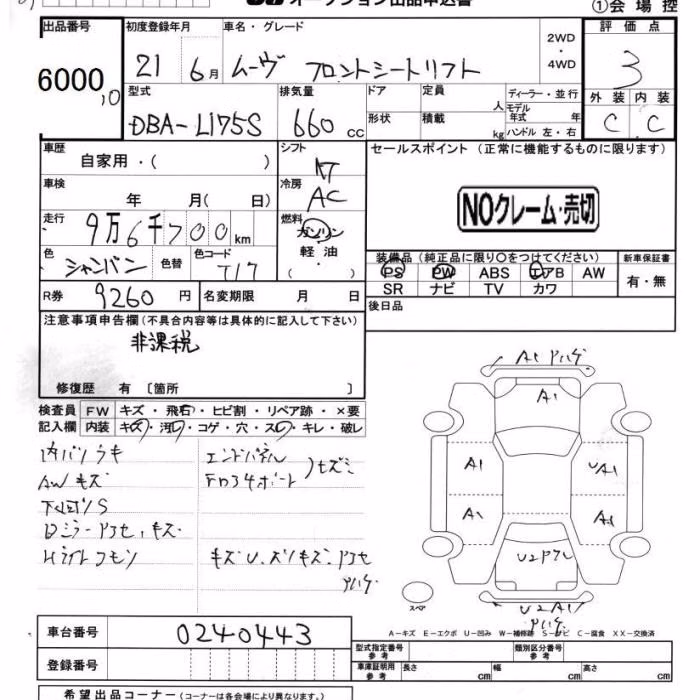 オークション出品申込書
①会場控
出品番号 6000,0
初度登録年月 21 6月
車名・グレード ムーヴ フロントシートリフト
2WD・4WD
評価点 3
外装 C 内装 C
型式 DBA-L175S
排気量 660 CC
ドア 形状
定員 人
積載 kg
ディーラー・並行
モデル年式 年
ハンドル 左・右
車歴 自家用・( )
シフト AT
セールスポイント (正常に機能するものに限ります)
NOクレーム・売切
車検 年 月( 日)
冷房 AC
走行 9万6千700km
燃料 ガソリン 軽油 ( ・ )
色 シャンパン 色替 色コード T17
装備品 (純正品に限り○をつけてください)
新車保証書 有・無
PS PW ABS エアB AW
SR ナビ TV カワ
R券 9260円
名変期限 月 日
後日品
注意事項申告欄 (不具合内容等は具体的に記入して下さい)
非課税
修復歴 有 〔箇所 〕
検査員記入欄
FW キズ・飛石・ヒビ割・リペア跡・×要
内装 キズ・汚レ・コゲ・穴・スレ・キレ・破レ
内バリ ウキ
エンドパネル
AWキズ
下回りS
Dミラー アセ、キズ
キズU、スリキズ、アセ
ハゲ
A1 ハゲ
A1
A1
A1
A1
U2
U2A1
ハゲ
スペア
A-キズ E-エクボ U-凹み W-補修跡 S-サビ C-腐食 XX-交換済
車台番号 0240443
登録番号
型式指定番号 参考
類別区分番号 参考
車庫証明用 参考 長さ cm 幅 cm 高さ cm
希望出品コーナー (コーナーは各会場により異なります。)